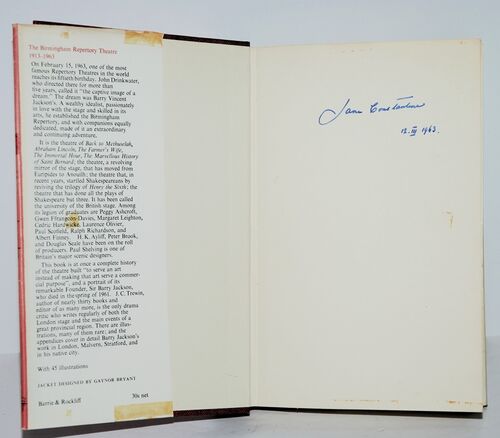 The Birmingham Repertory Theatre
1913-1963
On February 15, 1963, one of the most
famous Repertory Theatres in the world
reaches its fiftieth birthday. John Drinkwater,
who directed there for more than
five years, called it "the captive image of a
dream." The dream was Barry Vincent
Jackson's. A wealthy idealist, passionately
in love with the stage and skilled in its
arts, he established the Birmingham
Repertory; and with companions equally
dedicated, made of it an extraordinary
and continuing adventure.
It is the theatre of Back to Methuselah,
Abraham Lincoln, The Farmer's Wife,
The Immortal Hour, The Marvellous History
of Saint Bernard; the theatre, a revolving
mirror of the stage, that has moved from
Euripides to Anouilh; the theatre that, in
recent years, startled Shakespeareans by
reviving the trilogy of Henry the Sixth; the
theatre that has done all the plays of
Shakespeare but three. It has been called
the university of the British stage. Among
its legion of graduates are Peggy Ashcroft,
Gwen Ffrangcon-Davies, Margaret Leighton,
Cedric Hardwicke, Laurence Olivier,
Paul Scofield, Ralph Richardson, and
Albert Finney. H. K. Ayliff, Peter Brook,
and Douglas Seale have been on the roll
of producers. Paul Shelving is one of
Britain's major scenic designers.
This book is at once a complete history
of the theatre built "to serve an art
instead of making that art serve a commer-
cial purpose", and a portrait of its
remarkable Founder, Sir Barry Jackson,
who died in the spring of 1961. J. C. Trewin,
author of nearly thirty books and
editor of as many more, is the only drama
critic who writes regularly of both the
London stage and the main events of a
great provincial region. There are illus-
trations, many of them rare; and the
appendices cover in detail Barry Jackson's
work in London, Malvern, Stratford, and
in his native city.
With 45 illustrations
JACKET DESIGNED BY GAYNOR BRYANT
Barrie & Rockliff
30s net
12.III 1963.